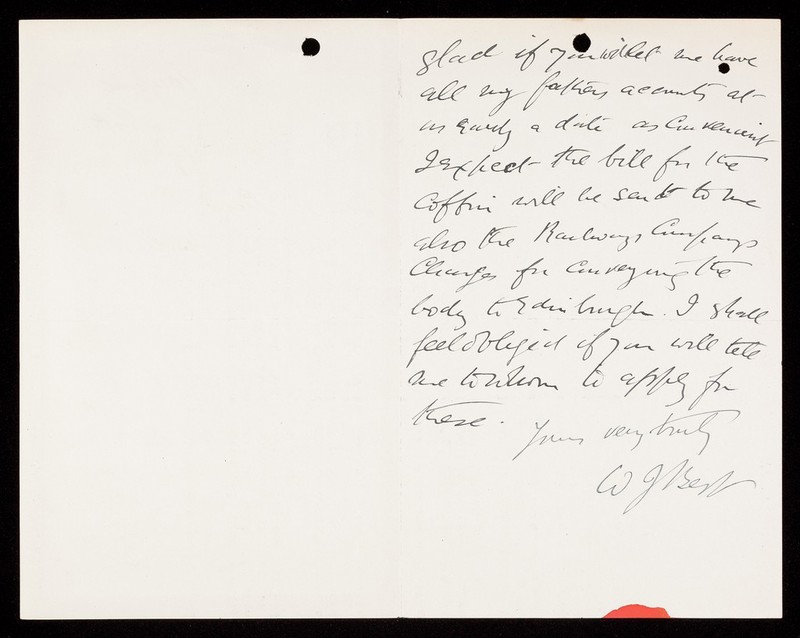 glad if you will let me have
all my fathers accounts at
as early a date as convenient
I expect the bill for the
coffin will be sent to me
also the Railways Companys
Charges for conveying the
body to Edinburgh. I shall
feel obliged if you will tell
me to whom to apply for
these.
Yours very truly
W J Best